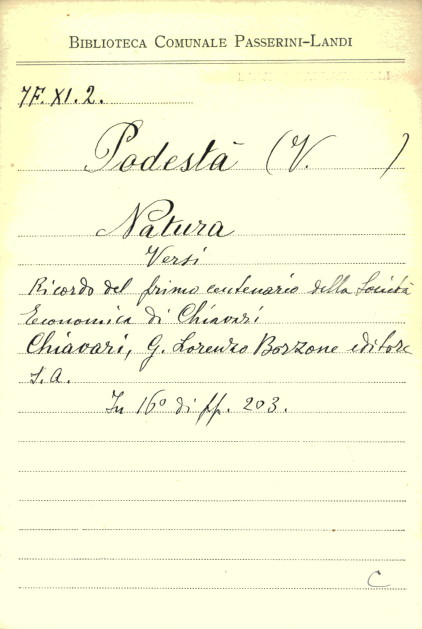 BIBLIOTECA COMUNALE PASSERINI-LANDI
7F. XI. 2.
Podestà (V. )
Natura
Versi
Ricordo del primo centenario della Società
Economica di Chiavari
Chiavari, G. Lorenzo Borzone editore
S. A.
In 16º di pp. 203.
C